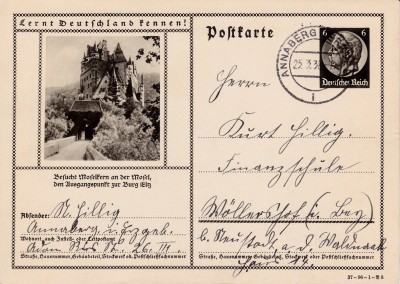 Lernt Deutschland kennen!
Postkarte
ANNABERG
25.3.3
i
6 6
Deutsches Reich
Herrn
Kurt Hillig.
Finanzschule
Wöllershof (i. Bay)
b. Neustadt a. d. Waldnaab
Haus 14.
Besucht Moselkern an der Mosel,
den Ausgangspunkt zur Burg Eltz
Absender: N. Hillig
Annaberg i. Erzgeb.
Wohnort, auch Zustell- oder Leitpostamt
Nr. 26 III.
Straße, Hausnummer, Gebäudeteil, Stockwerk od. Postschließfachnummer
Straße, Hausnummer, Gebäudeteil, Stockwerk od. Postschließfachnummer
37-96-1-B6